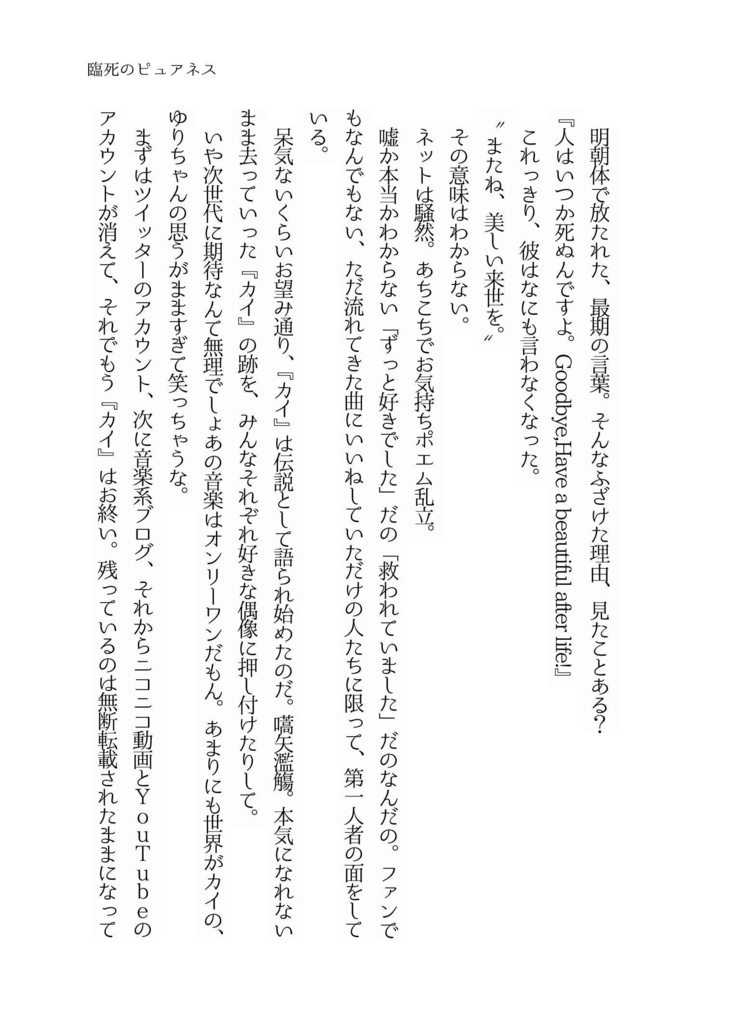 臨死のピュアネス
明朝体で放たれた、最期の言葉。そんなふざけた理由、見たことある？
『人はいつか死ぬんですよ。Goodbye,Have a beautiful after life!』
これっきり、彼はなにも言わなくなった。
〝またね、美しい来世を。〟
その意味はわからない。
ネットは騒然。あちこちでお気持ちポエム乱立。
嘘か本当かわからない「ずっと好きでした」だの「救われていました」だのなんだの。ファンで
もなんでもない、ただ流れてきた曲にいいねしていただけの人たちに限って、第一人者の面をして
いる。
呆気ないくらいお望み通り、『カイ』は伝説として語られ始めたのだ。嚆矢濫觴。本気になれない
まま去っていった『カイ』の跡を、みんなそれぞれ好きな偶像に押し付けたりして。
いや次世代に期待なんて無理でしょあの音楽はオンリーワンだもん。あまりにも世界がカイの、
ゆりちゃんの思うがまますぎて笑っちゃうな。
まずはツイッターのアカウント、次に音楽系ブログ、それからニコニコ動画とＹｏｕＴｕｂｅの
アカウントが消えて、それでもう『カイ』はお終い。残っているのは無断転載されたままになって